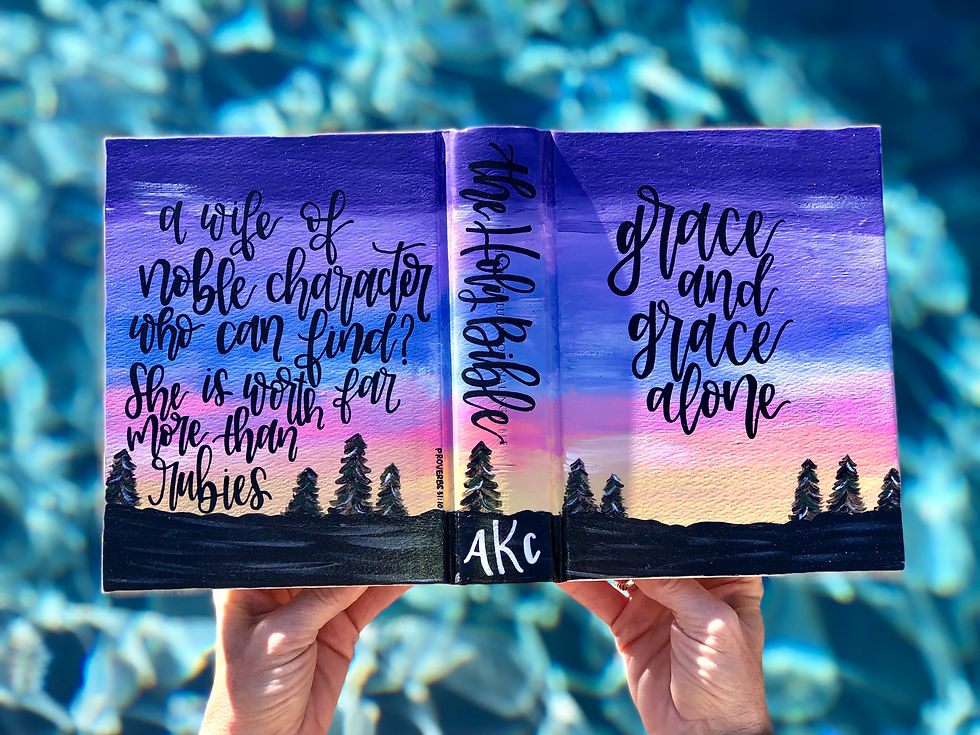 a wife of
noble character
who can find?
She is worth far
more than
rubies
PROVERBS 31:10
the Holy Bible
AKC
grace
and
grace
alone